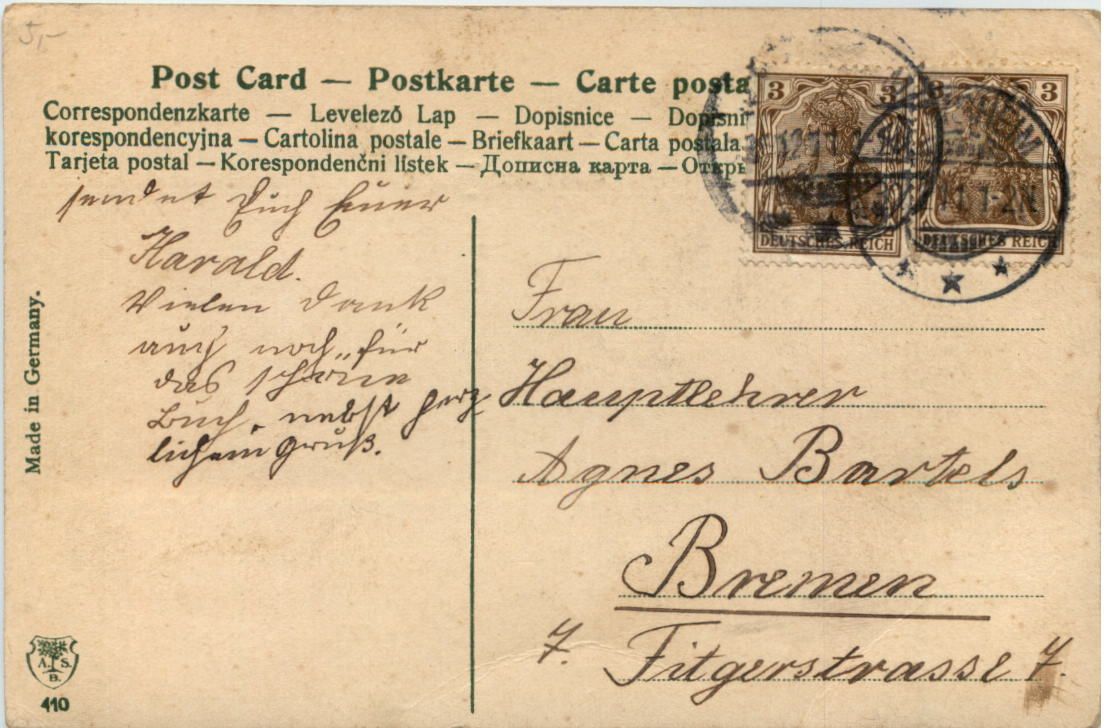 5,-
Post Card — Postkarte — Carte posta
Correspondenzkarte — Levelező Lap — Dopisnice — Dopisni
korespondencyjna — Cartolina postale — Briefkaart — Carta postala.
Tarjeta postal — Korespondenční lístek — Дописна карта — Откры
3 3
DEUTSCHES REICH
3 3
DEUTSCHES REICH
11 1-2N
sendet Euch Euer
Harald.
Vielen Dank
auch noch für
das schöne
Buch. nebst herz
lichem Gruß.
Frau
Hauptlehrer
Agnes Bartels
Bremen
7. Fitgerstrasse 7.
Made in Germany.
A. S.
B.
410